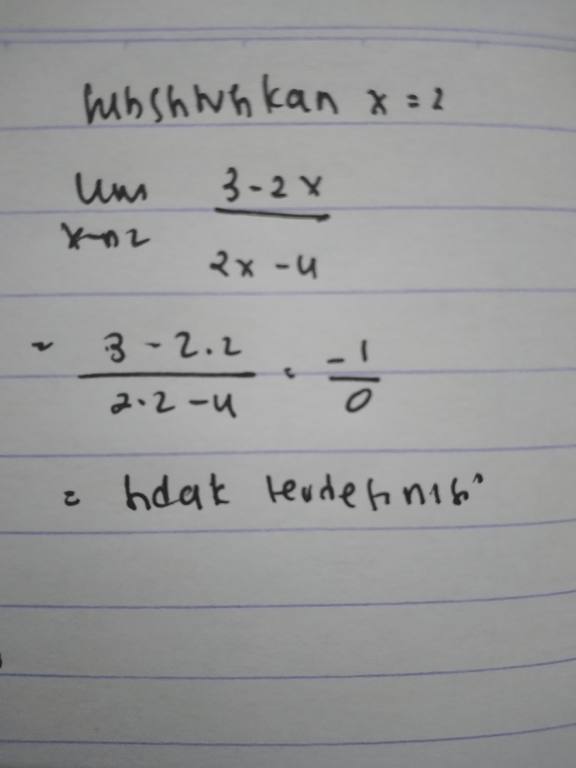 substitusikan x = 2
lim 3 - 2x
x→2 2x - 4
= 3 - 2.2 = -1
2.2 - 4 0
= tidak terdefinisi